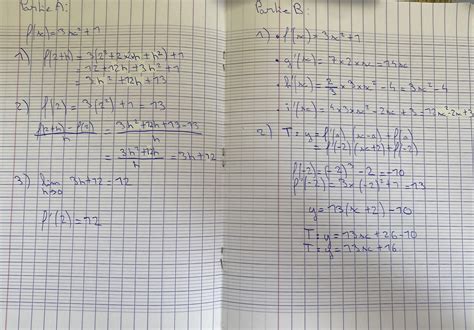 Partie A:
f(x) = 3x² + 1
1) f(2+h) = 3(2² + 2×2×h + h²) + 1
= 12 + 12h + 3h² + 1
= 3h² + 12h + 13
2) f(2) = 3(2²) + 1 = 13
f(2+h) - f(2) / h = 3h² + 12h + 13 - 13 / h
= 3h² + 12h / h = 3h + 12
3) lim h→0 3h + 12 = 12
f'(2) = 12
Partie B:
1) • f'(x) = 3x² + 1
• g'(x) = 7×2×x = 14x
• h'(x) = 2/3 × 3×x² - 4 = 2x² - 4
• i'(x) = 4×3×x² - 2x + 3 = 12x² - 2x + 3
2) T: y = f'(a) (x-a) + f(a)
= f'(-2) (x+2) + f(-2)
f(-2) = (-2)³ - 2 = -10
f'(-2) = 3×(-2)² + 1 = 13
y = 13(x + 2) - 10
T: y = 13x + 26 - 10
T: y = 13x + 16